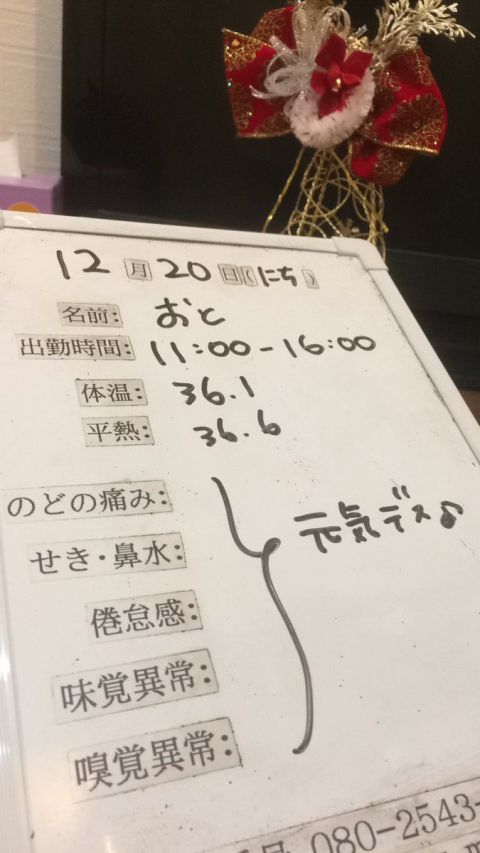 12月20日(にち)
名前: おと
出勤時間: 11:00-16:00
体温: 36.1
平熱: 36.6
のどの痛み:
せき・鼻水:
倦怠感:
味覚異常:
嗅覚異常:
元気デス♪
080-2543-